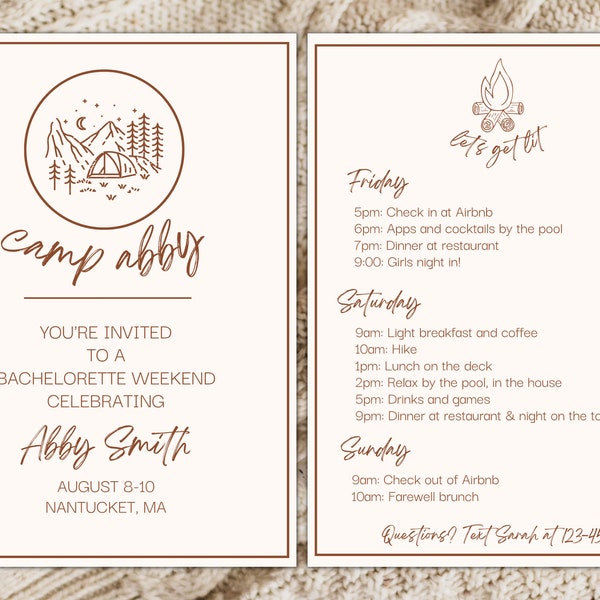 camp abby
YOU'RE INVITED
TO A
BACHELORETTE WEEKEND
CELEBRATING
Abby Smith
AUGUST 8-10
NANTUCKET, MA
let's get lit
Friday
5pm: Check in at Airbnb
6pm: Apps and cocktails by the pool
7pm: Dinner at restaurant
9:00: Girls night in!
Saturday
9am: Light breakfast and coffee
10am: Hike
1pm: Lunch on the deck
2pm: Relax by the pool, in the house
5pm: Drinks and games
9pm: Dinner at restaurant & night on the to
Sunday
9am: Check out of Airbnb
10am: Farewell brunch
Questions? Text Sarah at 123-45